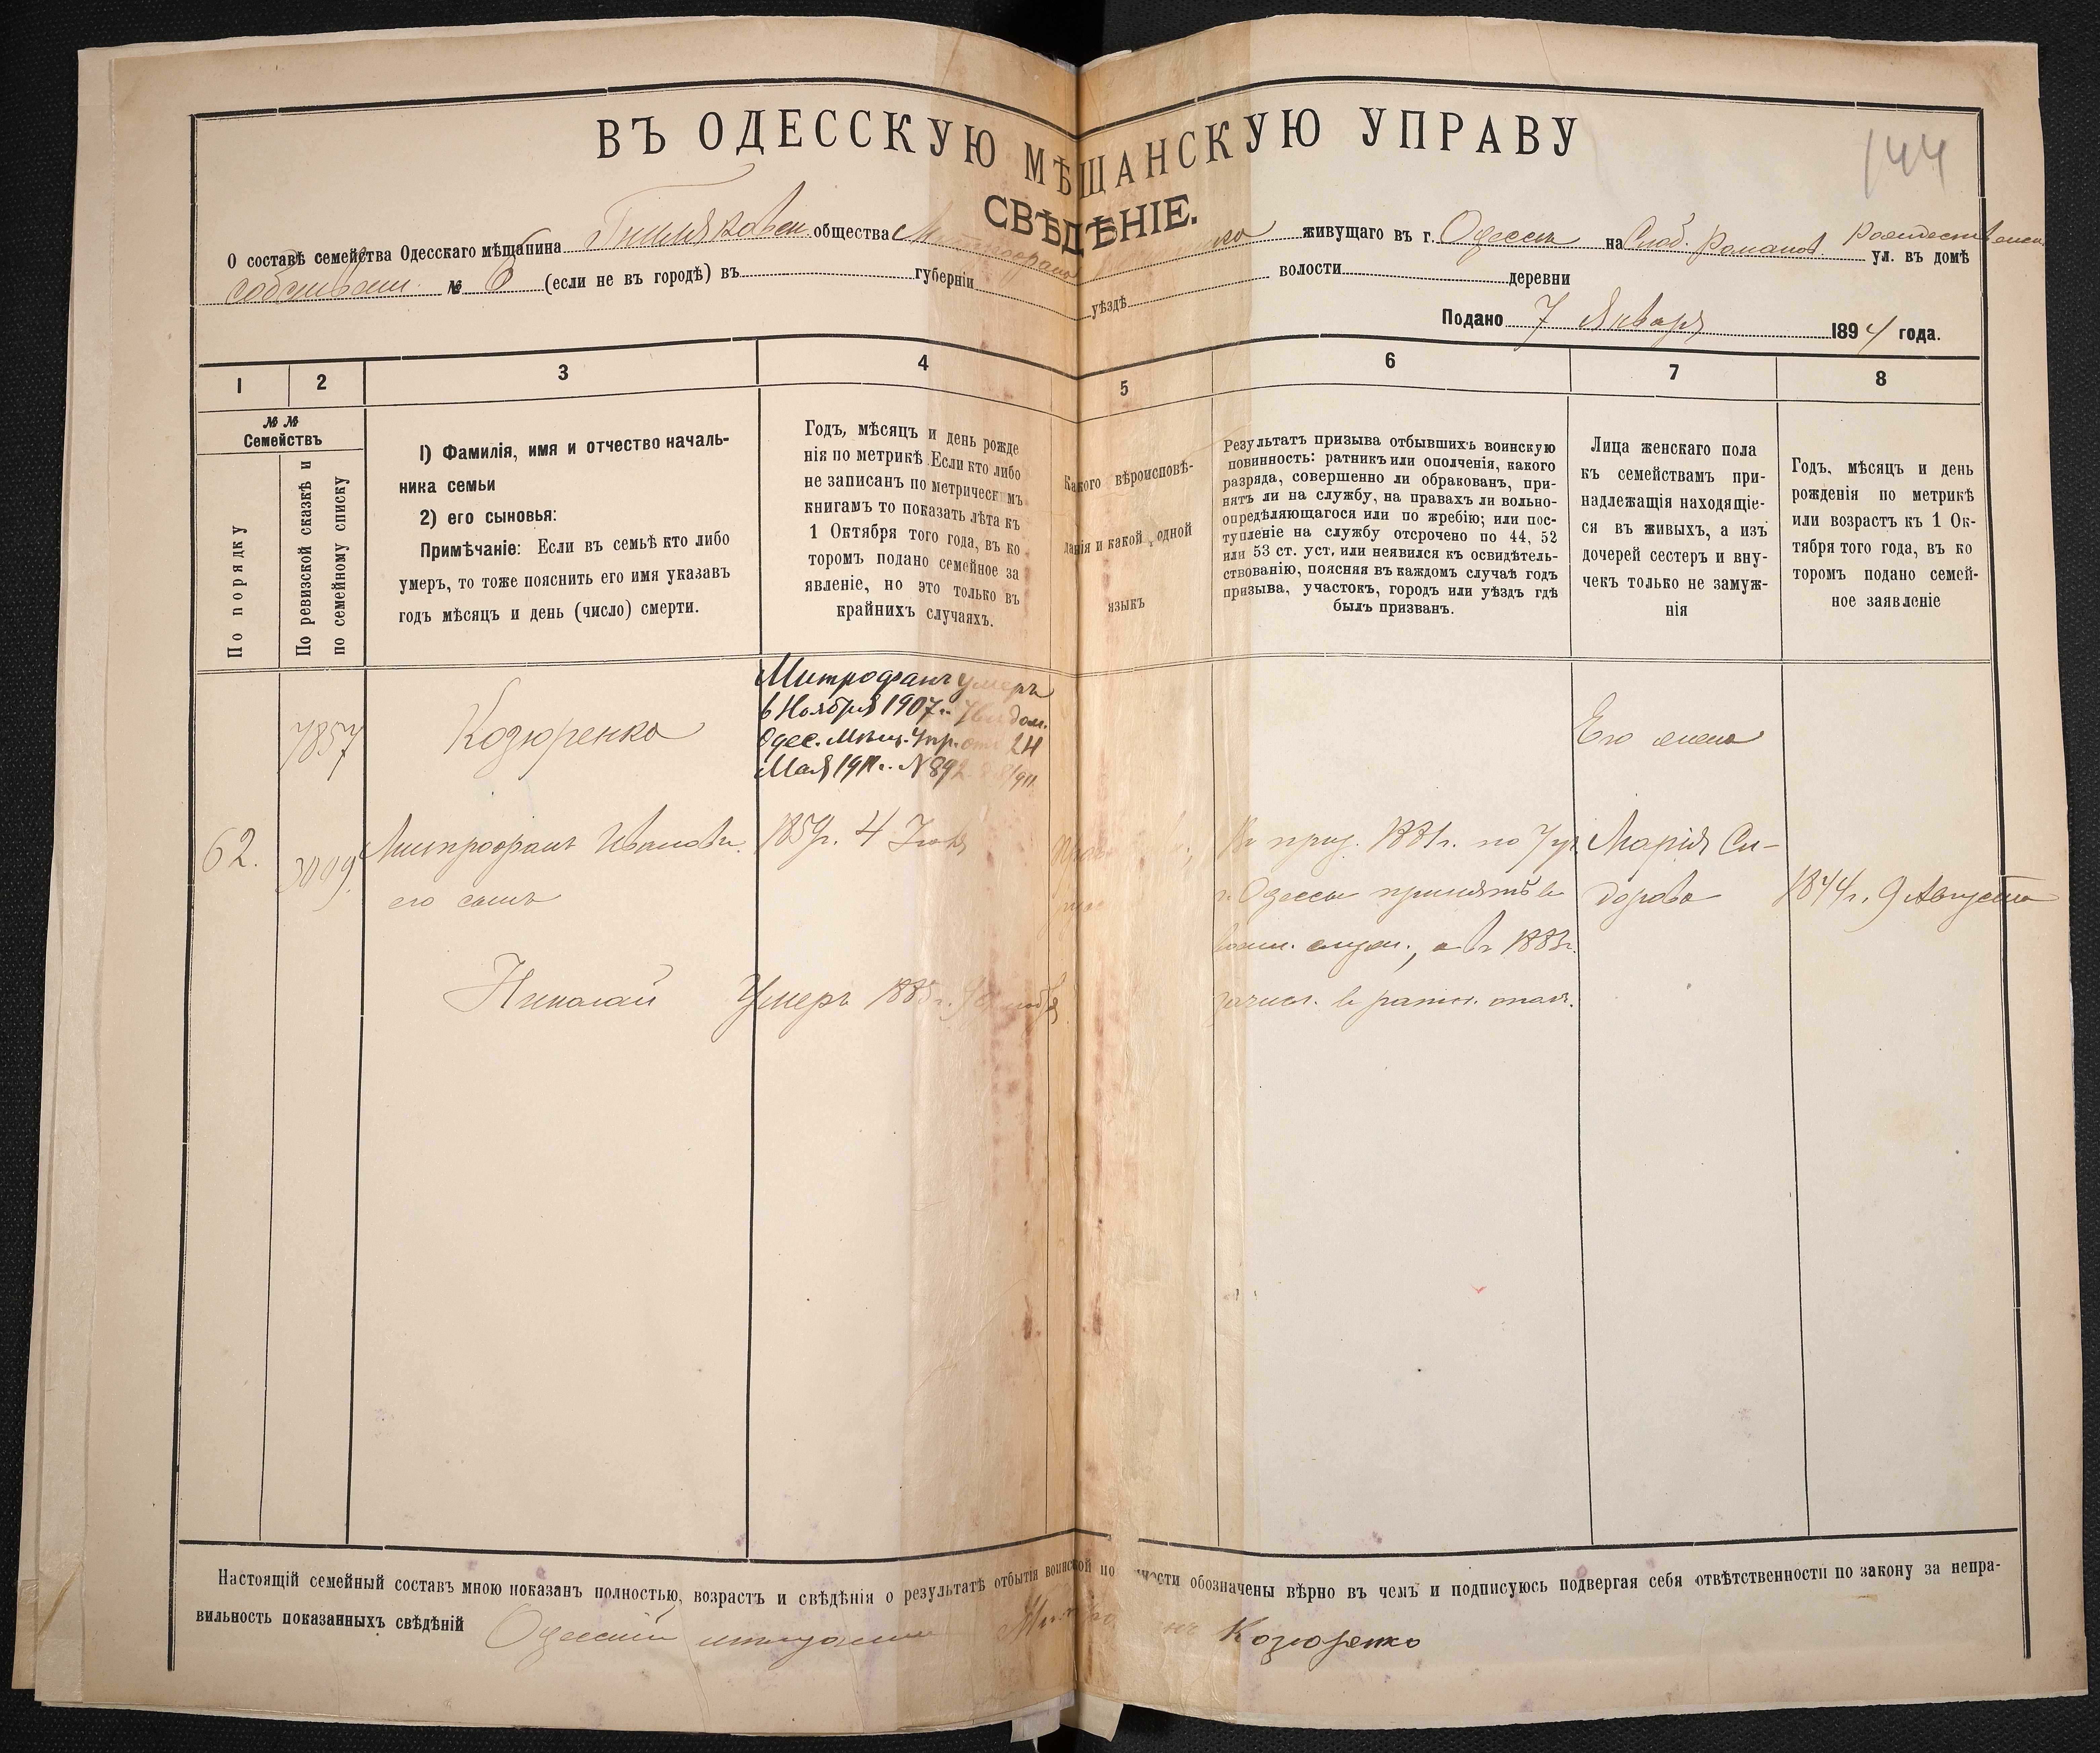 ВЪ ОДЕССКУЮ МѢЩАНСКУЮ УПРАВУ
144
СВѢДѢНІЕ.
О составѣ семейства Одесскаго мѣщанина Гниляковск. общества живущаго въ г. Одессѣ на Слоб. Романов. Рождественск. ул. въ домѣ
собствен. № 6 (если не въ городѣ) въ губерніи уѣздѣ волости деревни
Подано 7 Января 1894 года.
1 2 3 4 5 6 7 8
№ №
Семействъ
По порядку
По ревизской сказкѣ и
по семейному списку
1) Фамилія, имя и отчество началь-
ника семьи
2) его сыновья:
Примѣчаніе: Если въ семьѣ кто либо
умеръ, то тоже пояснить его имя указавъ
годъ мѣсяцъ и день (число) смерти.
Годъ, мѣсяцъ и день рожде
нія по метрикѣ. Если кто либо
не записанъ по метрическимъ
книгамъ то показать лѣта къ
1 Октября того года, въ ко
торомъ подано семейное за
явленіе, но это только въ
крайнихъ случаяхъ.
Какого вѣроисповѣ-
данія и какой родной
языкъ
Результатъ призыва отбывшихъ воинскую
повинность: ратникъ или ополченія, какого
разряда, совершенно ли обракованъ, при-
нятъ ли на службу, на правахъ ли вольно-
опредѣляющагося или по жребію; или пос-
тупленіе на службу отсрочено по 44, 52
или 53 ст. уст, или неявился къ освидѣтель-
ствованію, поясняя въ каждомъ случаѣ годъ
призыва, участокъ, городъ или уѣздъ гдѣ
былъ призванъ.
Лица женскаго пола
къ семействамъ при-
надлежащія находящіе-
ся въ живыхъ, а изъ
дочерей сестеръ и вну-
чекъ только не замуж-
нія
Годъ, мѣсяцъ и день
рожденія по метрикѣ
или возрастъ къ 1 Ок-
тября того года, въ ко
торомъ подано семей-
ное заявленіе
Митрофанъ умеръ
6 Ноября 1907 г. Увѣдом.
Одес. Мѣщ. Упр. отъ 24
Мая 1911 г. № 892
7857
Козюренко
Его жена
62.
3009.
Митрофанъ Иванов.
1859 г. 4 Іюня
Въ приз. 1881 г. по 7 уч.
Марія Си-
его сынъ
г. Одессы принятъ в
дорова
1844 г. 9 Августа
воен. служ., а въ 1883 г.
Николай
Умеръ 1885 г.
зачисл. в ратн. опол.
Настоящій семейный составъ мною показанъ полностью, возрастъ и свѣдѣнія о результатѣ отбытія воинской повинности обозначены вѣрно въ чемъ и подписуюсь подвергая себя отвѣтственности по закону за непра-
вильность показанныхъ свѣдѣній Одесскій мѣщанинъ Митрофанъ Козюренко